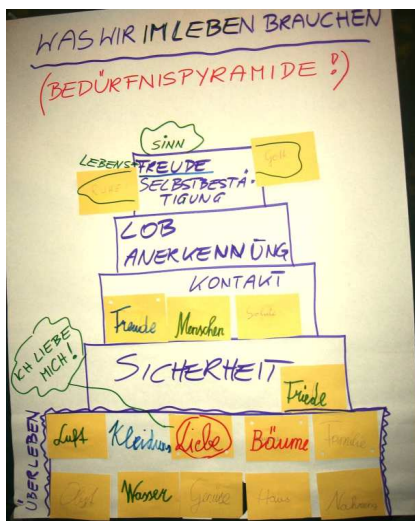 WAS WIR IM LEBEN BRAUCHEN
(BEDÜRFNISPYRAMIDE !)
SINN
LEBENS+FREUDE
Gott
SELBSTBESTÄ-
TIGUNG
LOB
ANERKENNUNG
KONTAKT
Freude Menschen
ICH LIEBE
MICH!
SICHERHEIT
Friede
ÜBERLEBEN
Luft Kleidung Liebe Bäume Familie
Wasser Gemüse Haus Nahrung